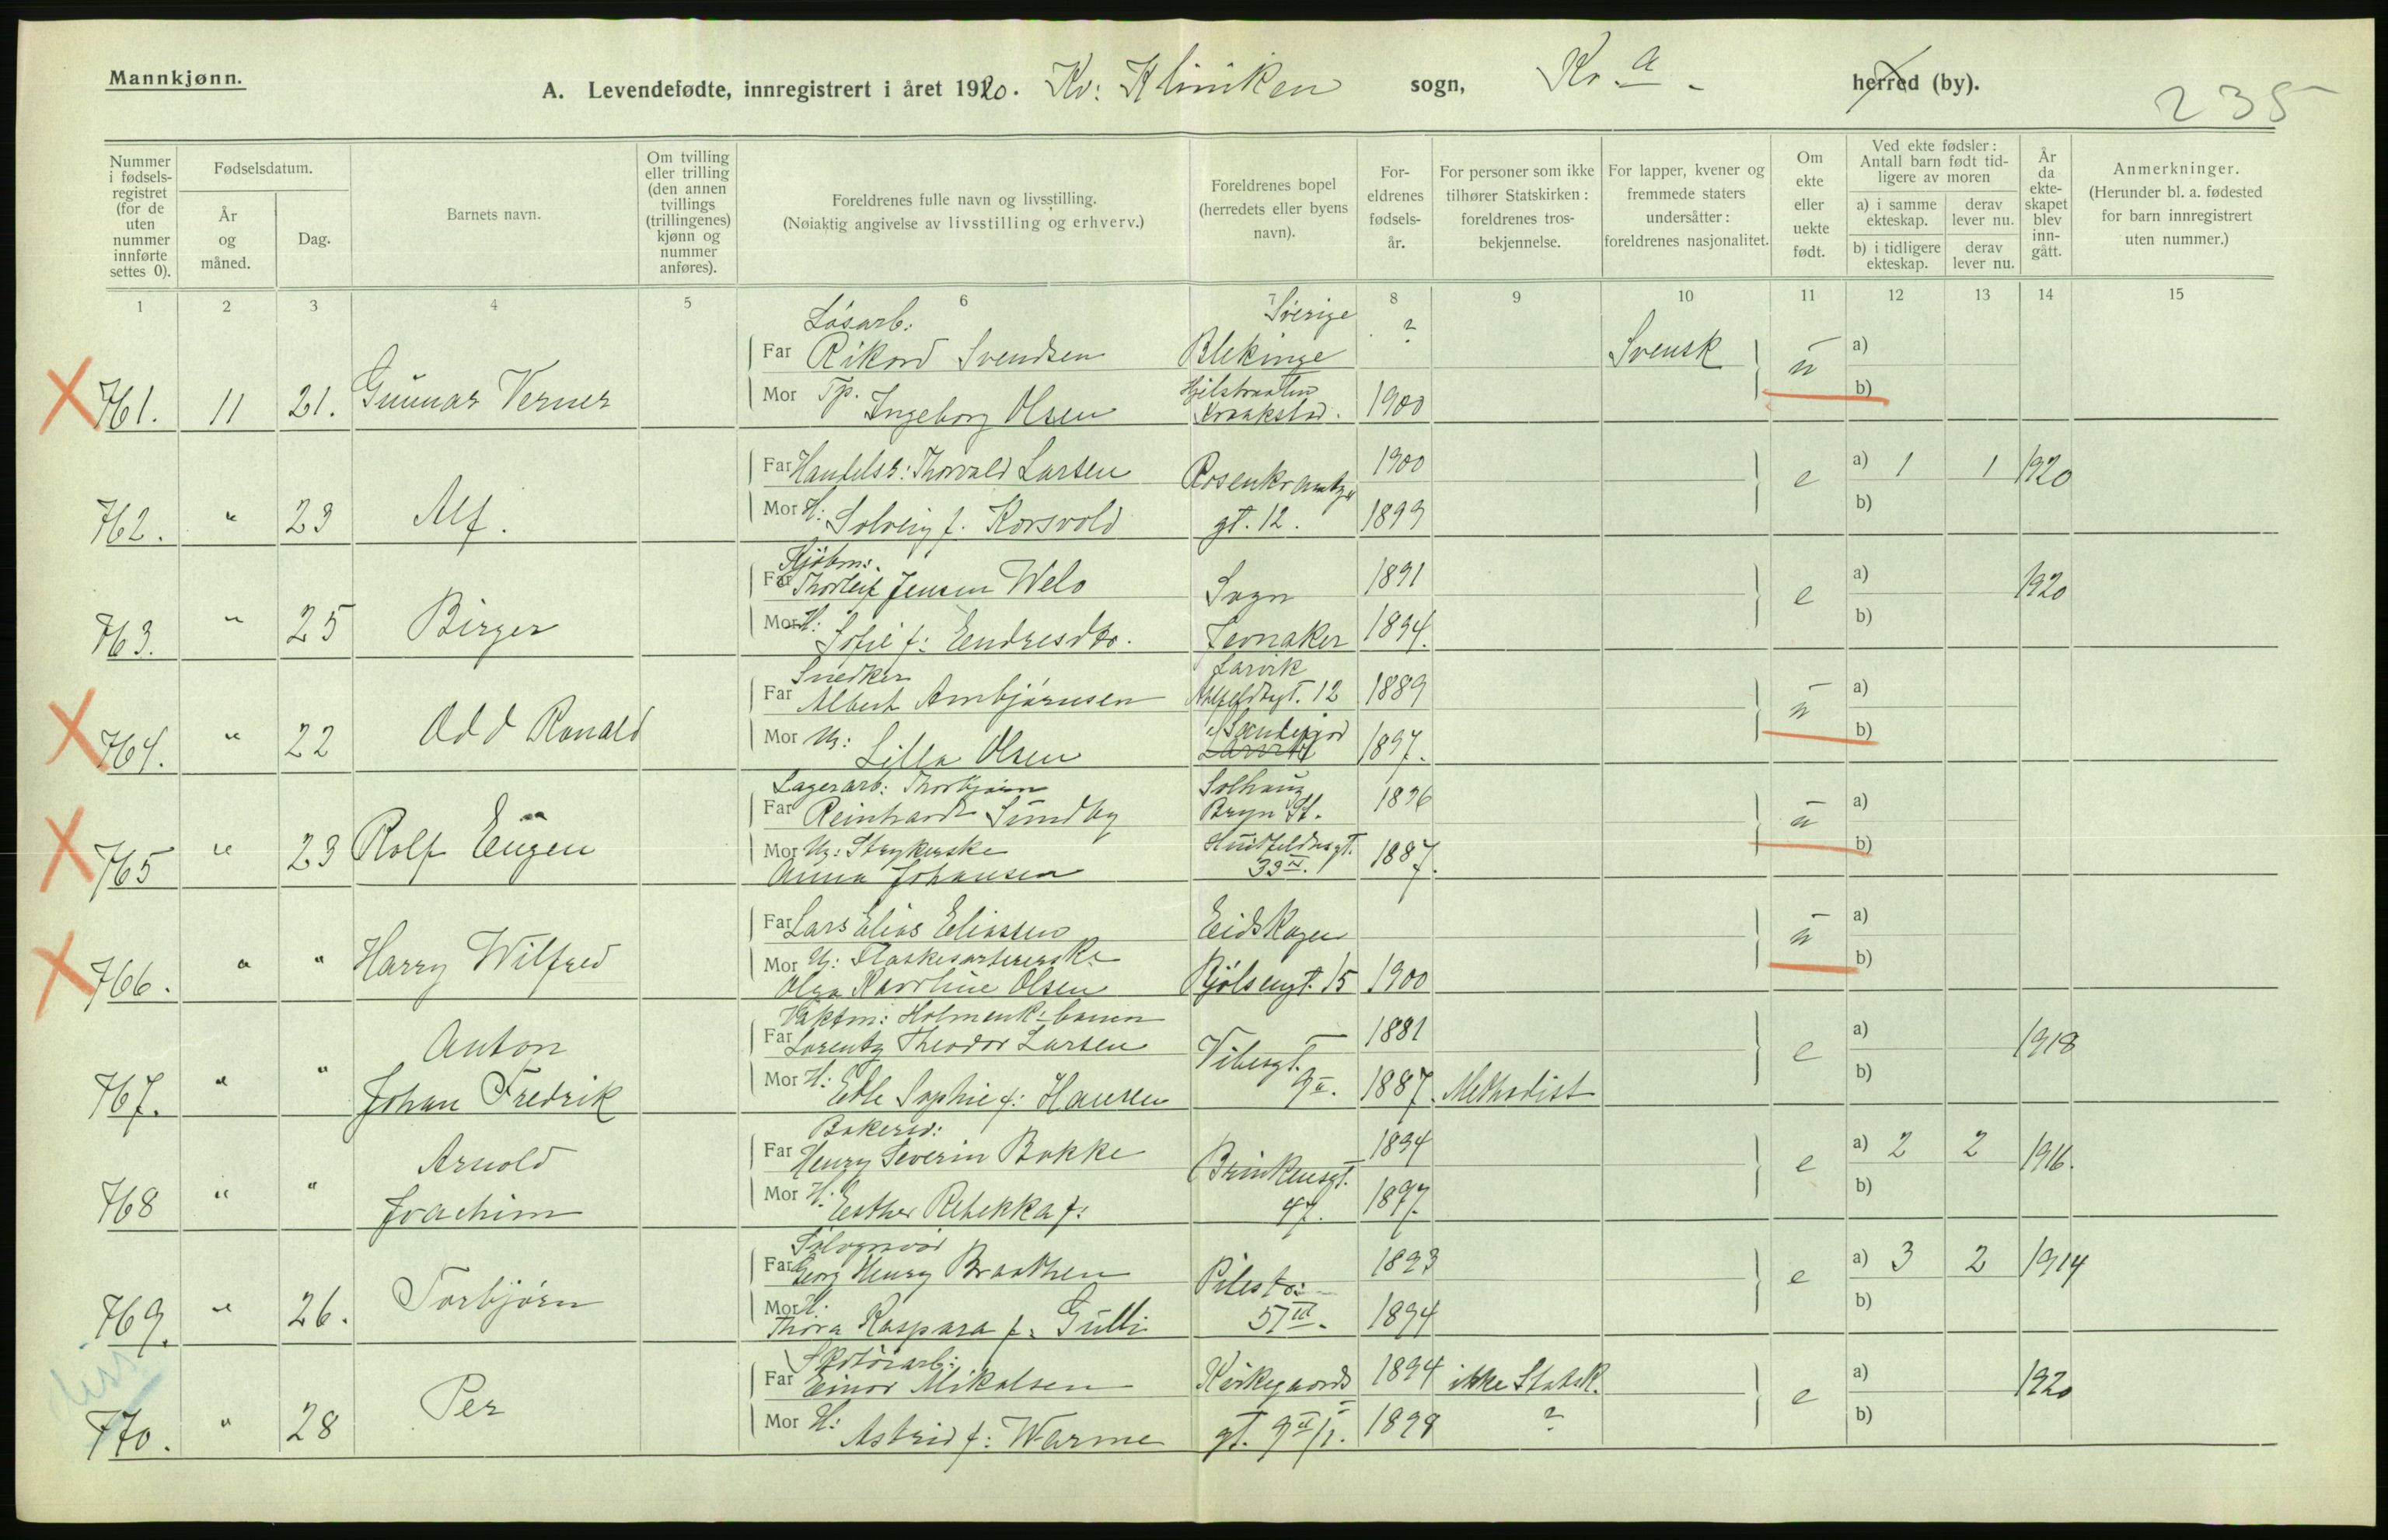 Mannkjønn.
A. Levendefødte, innregistrert i året 1920. Kv: Kliniken sogn, Kr.a. herred (by).
235
Nummer i fødsels-registret (for de uten nummer innførte settes 0).
Fødselsdatum.
År og måned.
Dag.
Barnets navn.
Om tvilling eller trilling (den annen tvillings (trillingenes) kjønn og nummer anføres).
Foreldrenes fulle navn og livsstilling.
(Nøiaktig angivelse av livsstilling og erhverv.)
Foreldrenes bopel (herredets eller byens navn).
For-eldrenes fødsels-år.
For personer som ikke tilhører Statskirken: foreldrenes tros-bekjennelse.
For lapper, kvener og fremmede staters undersåtter: foreldrenes nasjonalitet.
Om ekte eller uekte født.
Ved ekte fødsler: Antall barn født tid-ligere av moren
a) i samme ekteskap.
derav lever nu.
b) i tidligere ekteskap.
derav lever nu.
År da ekte-skapet blev inn-gått.
Anmerkninger.
(Herunder bl. a. fødested for barn innregistrert uten nummer.)
1 2 3 4 5 6 7 8 9 10 11 12 13 14 15
Løsarb: Sverige
Far Rikard Svendsen Blekinge ? Svensk ū a)
761. 11 21. Gunnar Verner
Mor Tp. Ingeborg Olsen Kraakstad. 1900 b)
Far Handelsr: Thorvald Larsen Rosenkrantz 1900 e a) 1 1 1920
762. " 23 Alf.
Mor H: Solveig f. Korsvold gt. 12. 1899 b)
Kjøbm:
Far Thorleif Jensen Welo Sogn 1891 e a) 1920
763. " 25 Birger
Mor H: Sofie f: Endresdtr. Jevnaker 1894. b)
Snedker Larvik
Far Albert Arnbjørnsen gt. 12 1889 ū a)
764. " 22 Odd Ronald
Mor U: Lilla Olsen Sandefjord Larvik 1897. b)
Lagerarb: Thorbjørn Solhaug
Far Reinhardt Sundby Bryn St. 1896 ū a)
765 " 23 Rolf Eugen
Mor U: Strykerske Huitfeldtsgt. 1887. b)
Anna Johansen 33 IV.
Far Lars Elias Eliassen Eidskogen ū a)
766. " " Harry Wilfred
Mor U: Flaskesortererske b)
Olga Karoline Olsen Bjølsengt. 15 1900
Vaktm: Holmenk: banen
Far Lorentz Theodor Larsen Vibesgt. 1881 e a) 1918
767. " " Anton Johan Fredrik
Mor H: Edle Sophie f: Hansen 9 II. 1887. Methodist b)
Bakersv:
Far Henry Severin Bakke Brinkensgt. 1894 e a) 2 2 1916.
768 " " Arnold Joachim
Mor H: Esther Rebekka f: 47. 1897. b)
Far Georg Henry Braathen Pilestr: 1893 e a) 3 2 1914
769. " 26. Torbjørn
Mor H: Thora Kaspara f: Gulli 57 III. 1894 b)
Skotøiarb:
Far Einar Mikalsen Kirkegaards 1894 ikke Statsk. e a) 1920
770. " 28 Per
Mor H: Astrid f: Warme gt. 9 II/I. 1899 ? b)